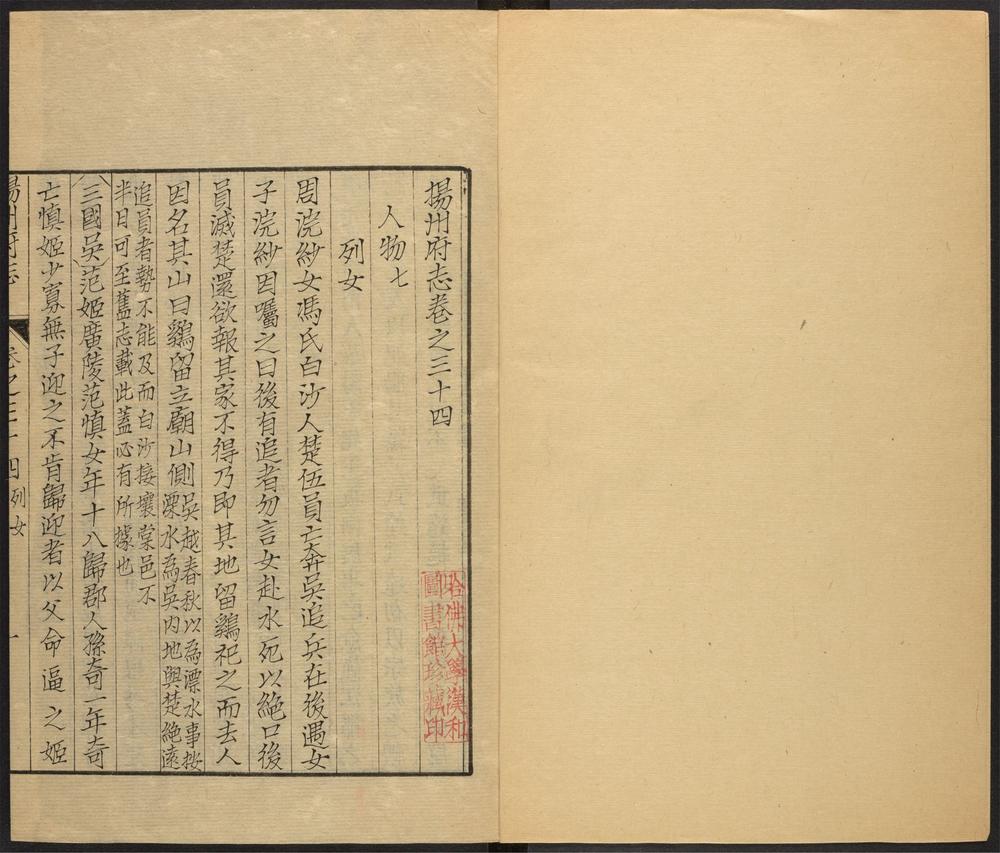 揚州府志卷之三十四
人物七
列女
周浣紗女馮氏白沙人楚伍員亡奔吳追兵在後遇女
子浣紗因囑之曰後有追者勿言女赴水死以絶口後
員滅楚還欲報其家不得乃即其地留鷄祀之而去人
因名其山曰鷄留立廟山側吳越春秋以為漂水事按
溧水為吳内地與楚絶遠
追員者勢不能及而白沙接壤棠邑不
半日可至舊志載此蓋必有所據也
三國吳范姬廣陵范慎女年十八歸郡人孫奇一年奇
亡慎姬少寡無子迎之不肯歸迎者以父命逼之姬
揚州府志 卷之三十四 列女 一
哈佛大學漢和
圖書館珍藏印